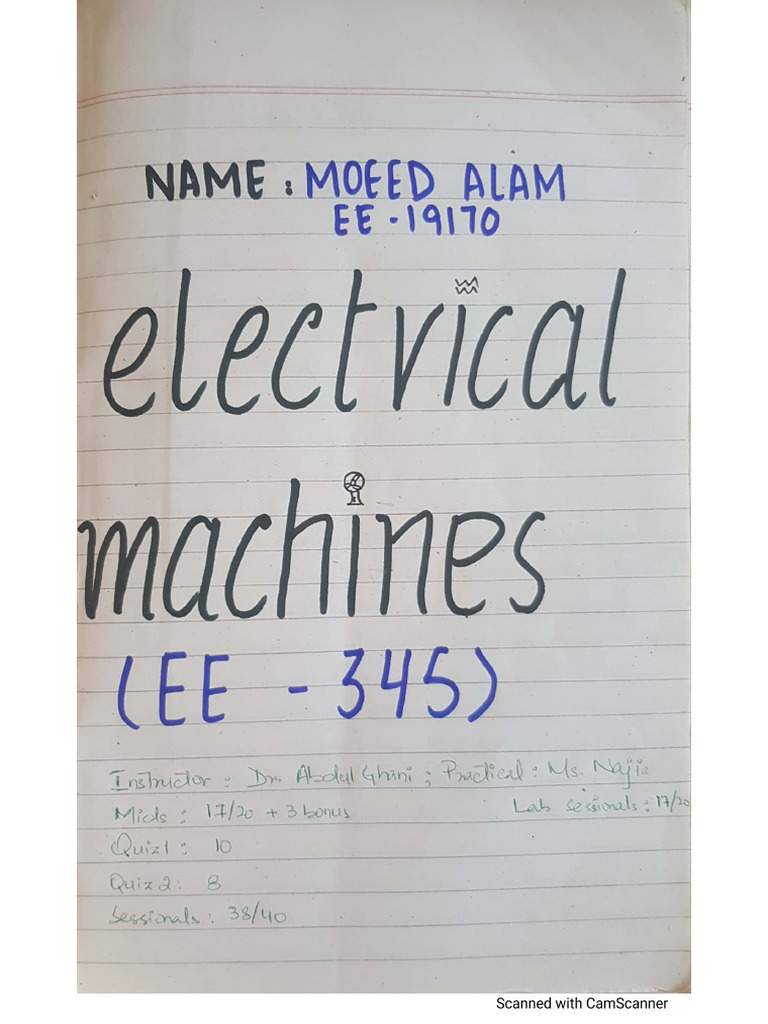 NAME : MOEED ALAM
EE - 19170
electrical
machines
(EE - 345)
Instructor : Dr. Abdul Ghani ; Practical : Ms. Najia
Mids : 17/20 + 3 bonus Lab sessionals : 17/20
Quiz 1 : 10
Quiz 2 : 8
Sessionals : 38/40
Scanned with CamScanner